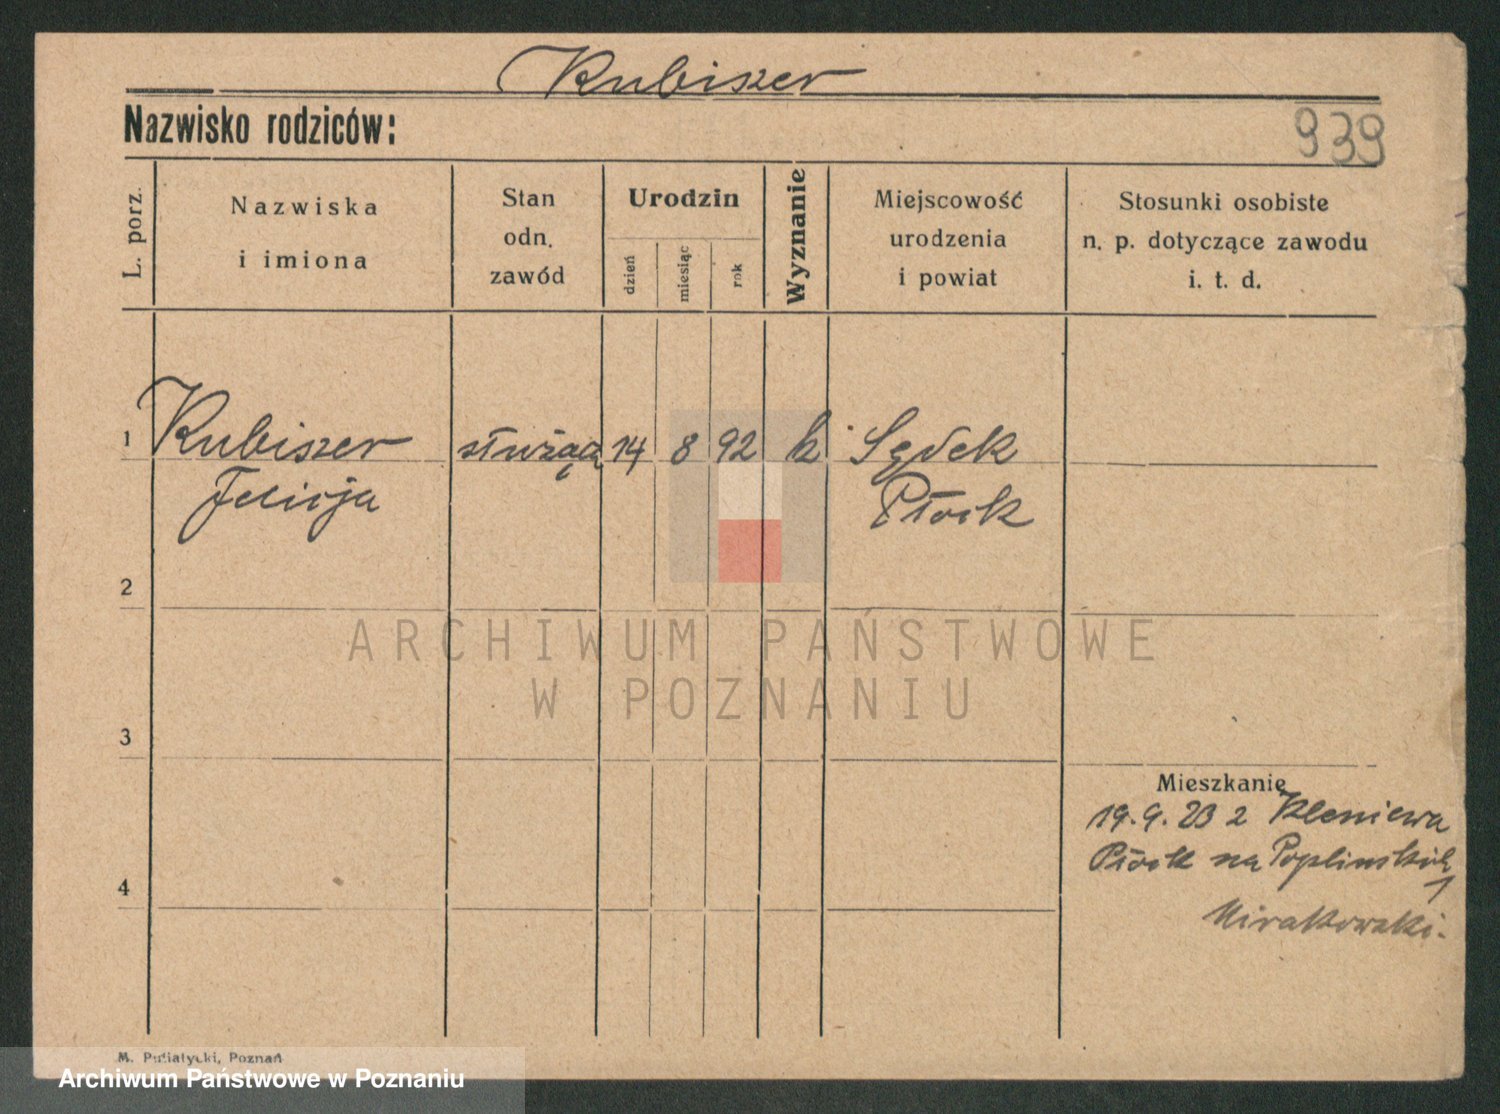 Kubiszer
Nazwisko rodziców:
939
L. porz.
Nazwiska
i imiona
Stan
odn.
zawód
Urodzin
dzień
miesiąc
rok
Wyznanie
Miejscowość
urodzenia
i powiat
Stosunki osobiste
n. p. dotyczące zawodu
i. t. d.
1 Kubiszer służąca 14 8 92 k Sędek
Felicja Płock
2
ARCHIWUM PAŃSTWOWE
W POZNANIU
3
Mieszkanie
19.9.23 z Kleniewa
Płock na
4
M. Putiatycki, Poznań
Archiwum Państwowe w Poznaniu